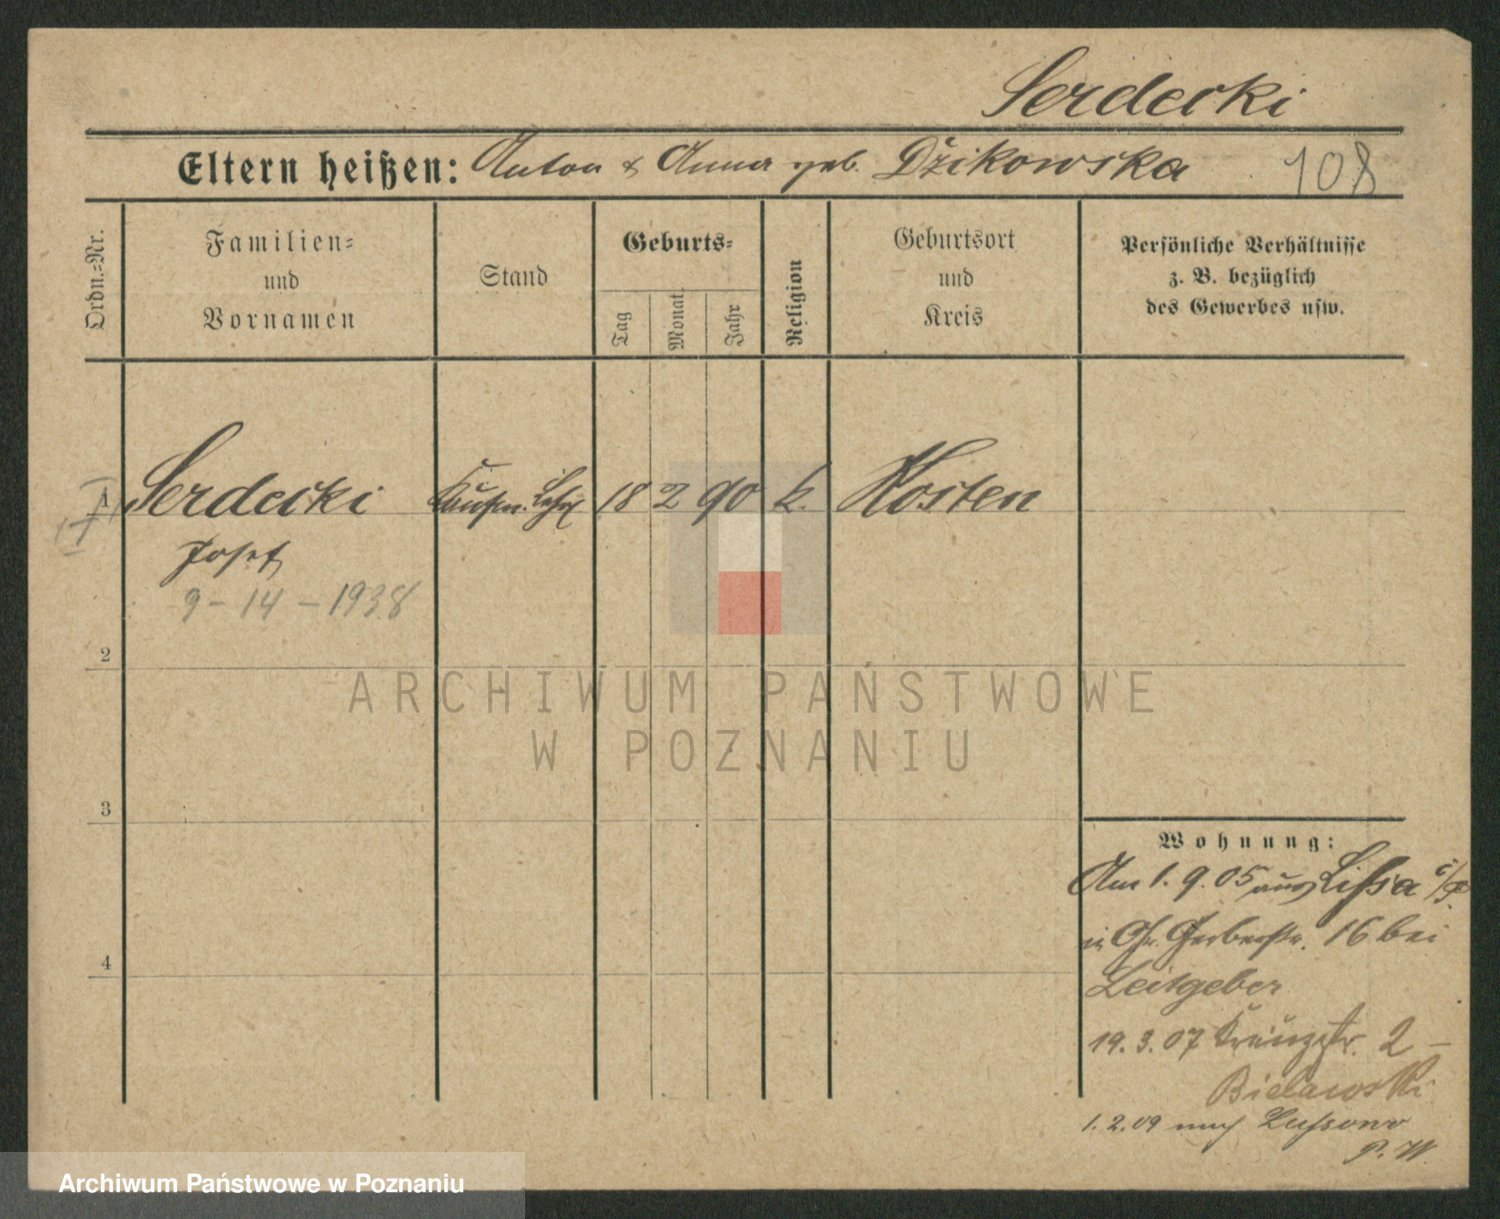 Serdecki
Eltern heißen: Anton & Anna geb. Džikowska 108
Ordn.=Nr.
Familien=
und
Vornamen
Stand
Geburts=
Tag
Monat
Jahr
Religion
Geburtsort
und
Kreis
Persönliche Verhältnisse
z. B. bezüglich
des Gewerbes usw.
1 Serdecki Kaufm. Lehrl 18 2 90 k. Kosten
Josef
9-14-1938
2
ARCHIWUM PAŃSTWOWE
W POZNANIU
3
Wohnung:
Am 1. 9. 05 aus Lissa i/P.
in Gr. Gerberstr. 16 bei
Leitgeber
4
19. 3. 07 Kreuzstr. 2 –
Bielawski
1. 2. 09 nach Lussowo
P. W.
Archiwum Państwowe w Poznaniu